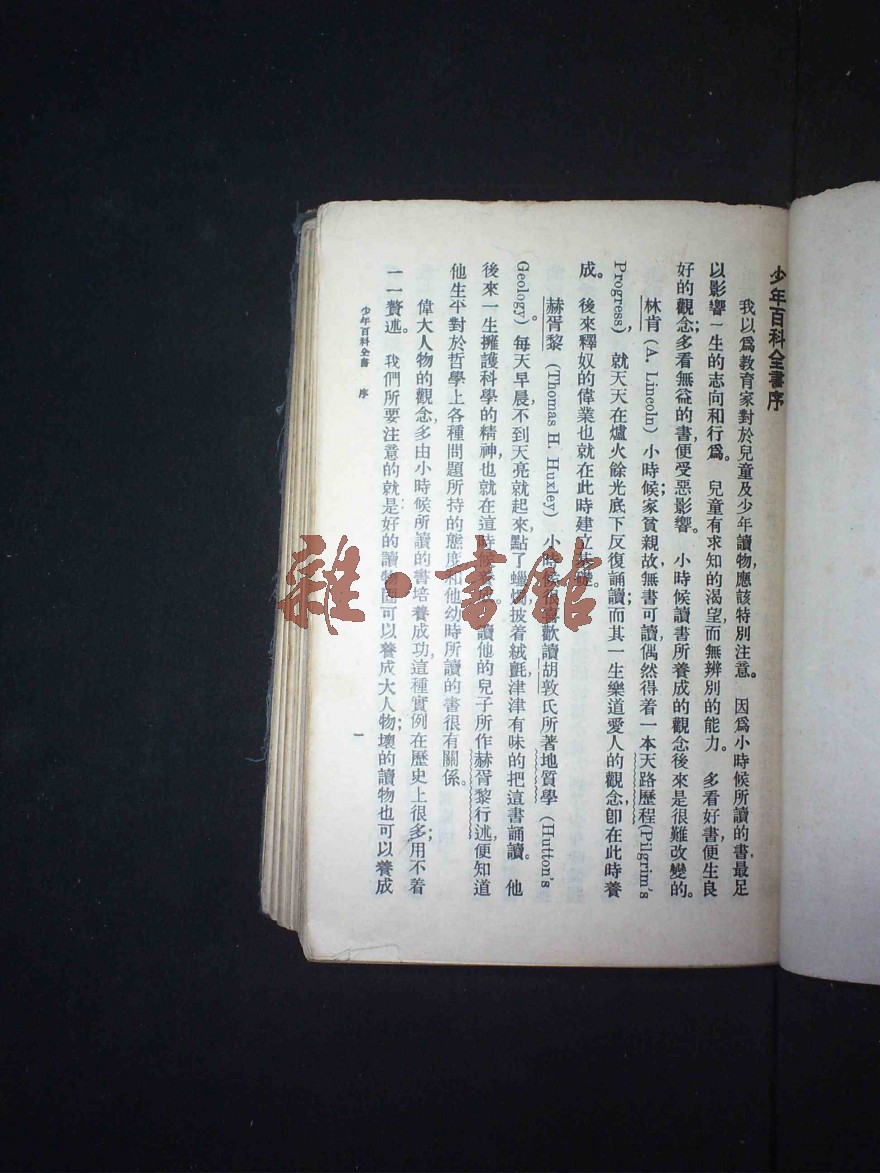 少年百科全書序
我以爲教育家對於兒童及少年讀物，應該特別注意。因爲小時候所讀的書，最足
以影響一生的志向和行爲。兒童有求知的渴望而無辨別的能力。多看好書，便生良
好的觀念；多看無益的書，便受惡影響。小時候讀書所養成的觀念後來是很難改變的。
林肯(A. Lincoln)小時候家貧親故無書可讀；偶然得着一本天路歷程(Pilgrim's
Progress)，就天天在爐火餘光底下反復誦讀；而其一生樂道愛人的觀念，卽在此時養
成。後來釋奴的偉業也就在此時建立基礎。
赫胥黎(Thomas H. Huxley)小時候很喜歡讀胡敦氏所著地質學(Hutton's
Geology)。每天早晨，不到天亮就起來，點了蠟燭，披着絨氈，津津有味的把這書誦讀。他
後來一生擁護科學的精神，也就在這時候養成。讀他的兒子所作赫胥黎行述，便知道
他生平對於哲學上各種問題所持的態度，和他幼時所讀的書很有關係。
偉大人物的觀念，多由小時候所讀的書培養成功，這種實例在歷史上很多；用不着
一一贅述。我們所要注意的就是好的讀物固可以養成大人物；壞的讀物也可以養成
少年百科全書 序
一
雜·書館